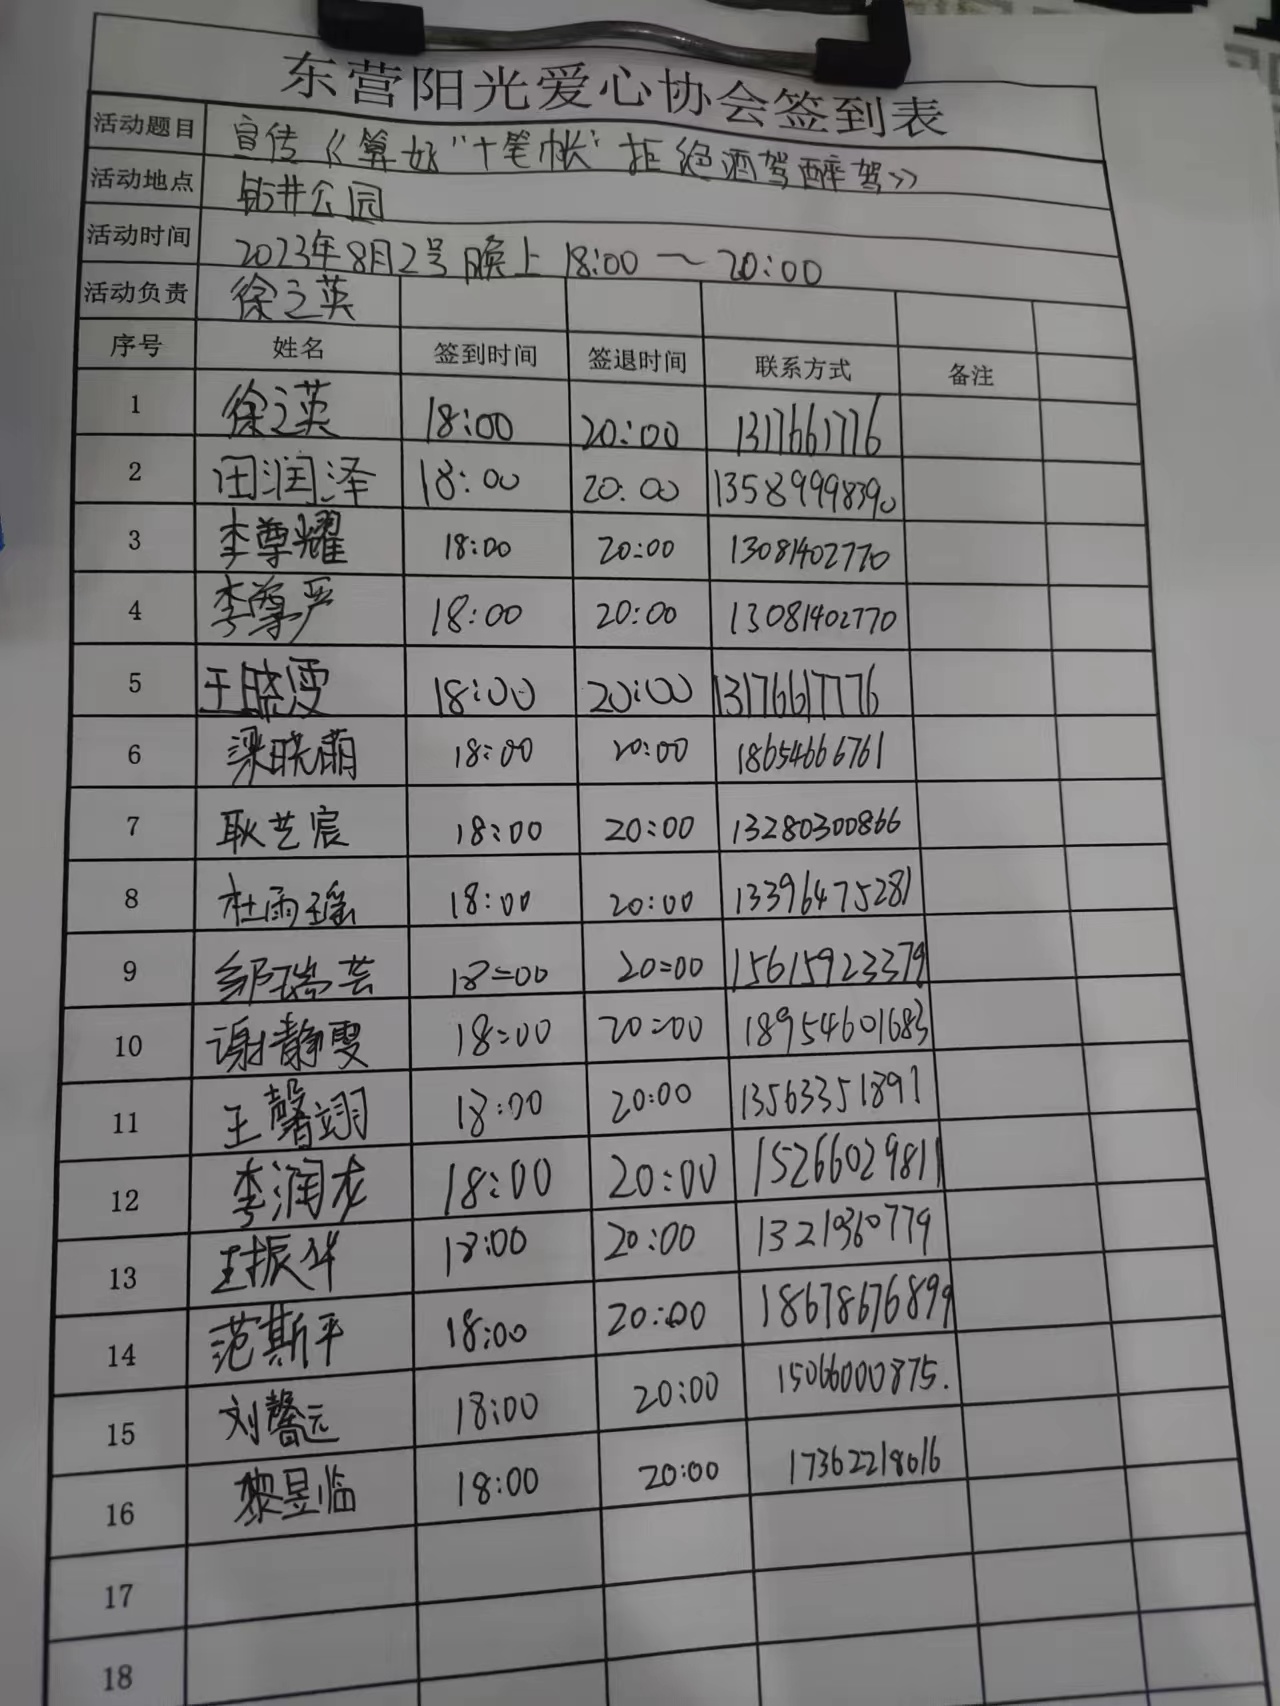 东营阳光爱心协会签到表
活动题目 宣传《算好"十笔帐"拒绝酒驾醉驾》
活动地点 钻井公园
活动时间 2023年8月2号晚上18:00～20:00
活动负责 徐之英
序号 姓名 签到时间 签退时间 联系方式 备注
1 徐之英 18:00 20:00 1317661776
2 田润泽 18:00 20:00 135899998390
3 李尊耀 18:00 20:00 13081402770
4 李尊严 18:00 20:00 13081402770
5 王晓雯 18:00 20:00 13176617776
6 梁晓萌 18:00 20:00 18654666761
7 耿艺宸 18:00 20:00 13280300866
8 杜雨瑶 18:00 20:00 13396475281
9 邹瑞芸 18:00 20:00 15615923379
10 谢静雯 18:00 20:00 18954601683
11 王馨翊 18:00 20:00 13563351891
12 李润龙 18:00 20:00 15266029811
13 王振华 18:00 20:00 13210360779
14 范斯平 18:00 20:00 18678676899
15 刘馨元 18:00 20:00 15066000875.
16 黎昱临 18:00 20:00 17362218016
17
18